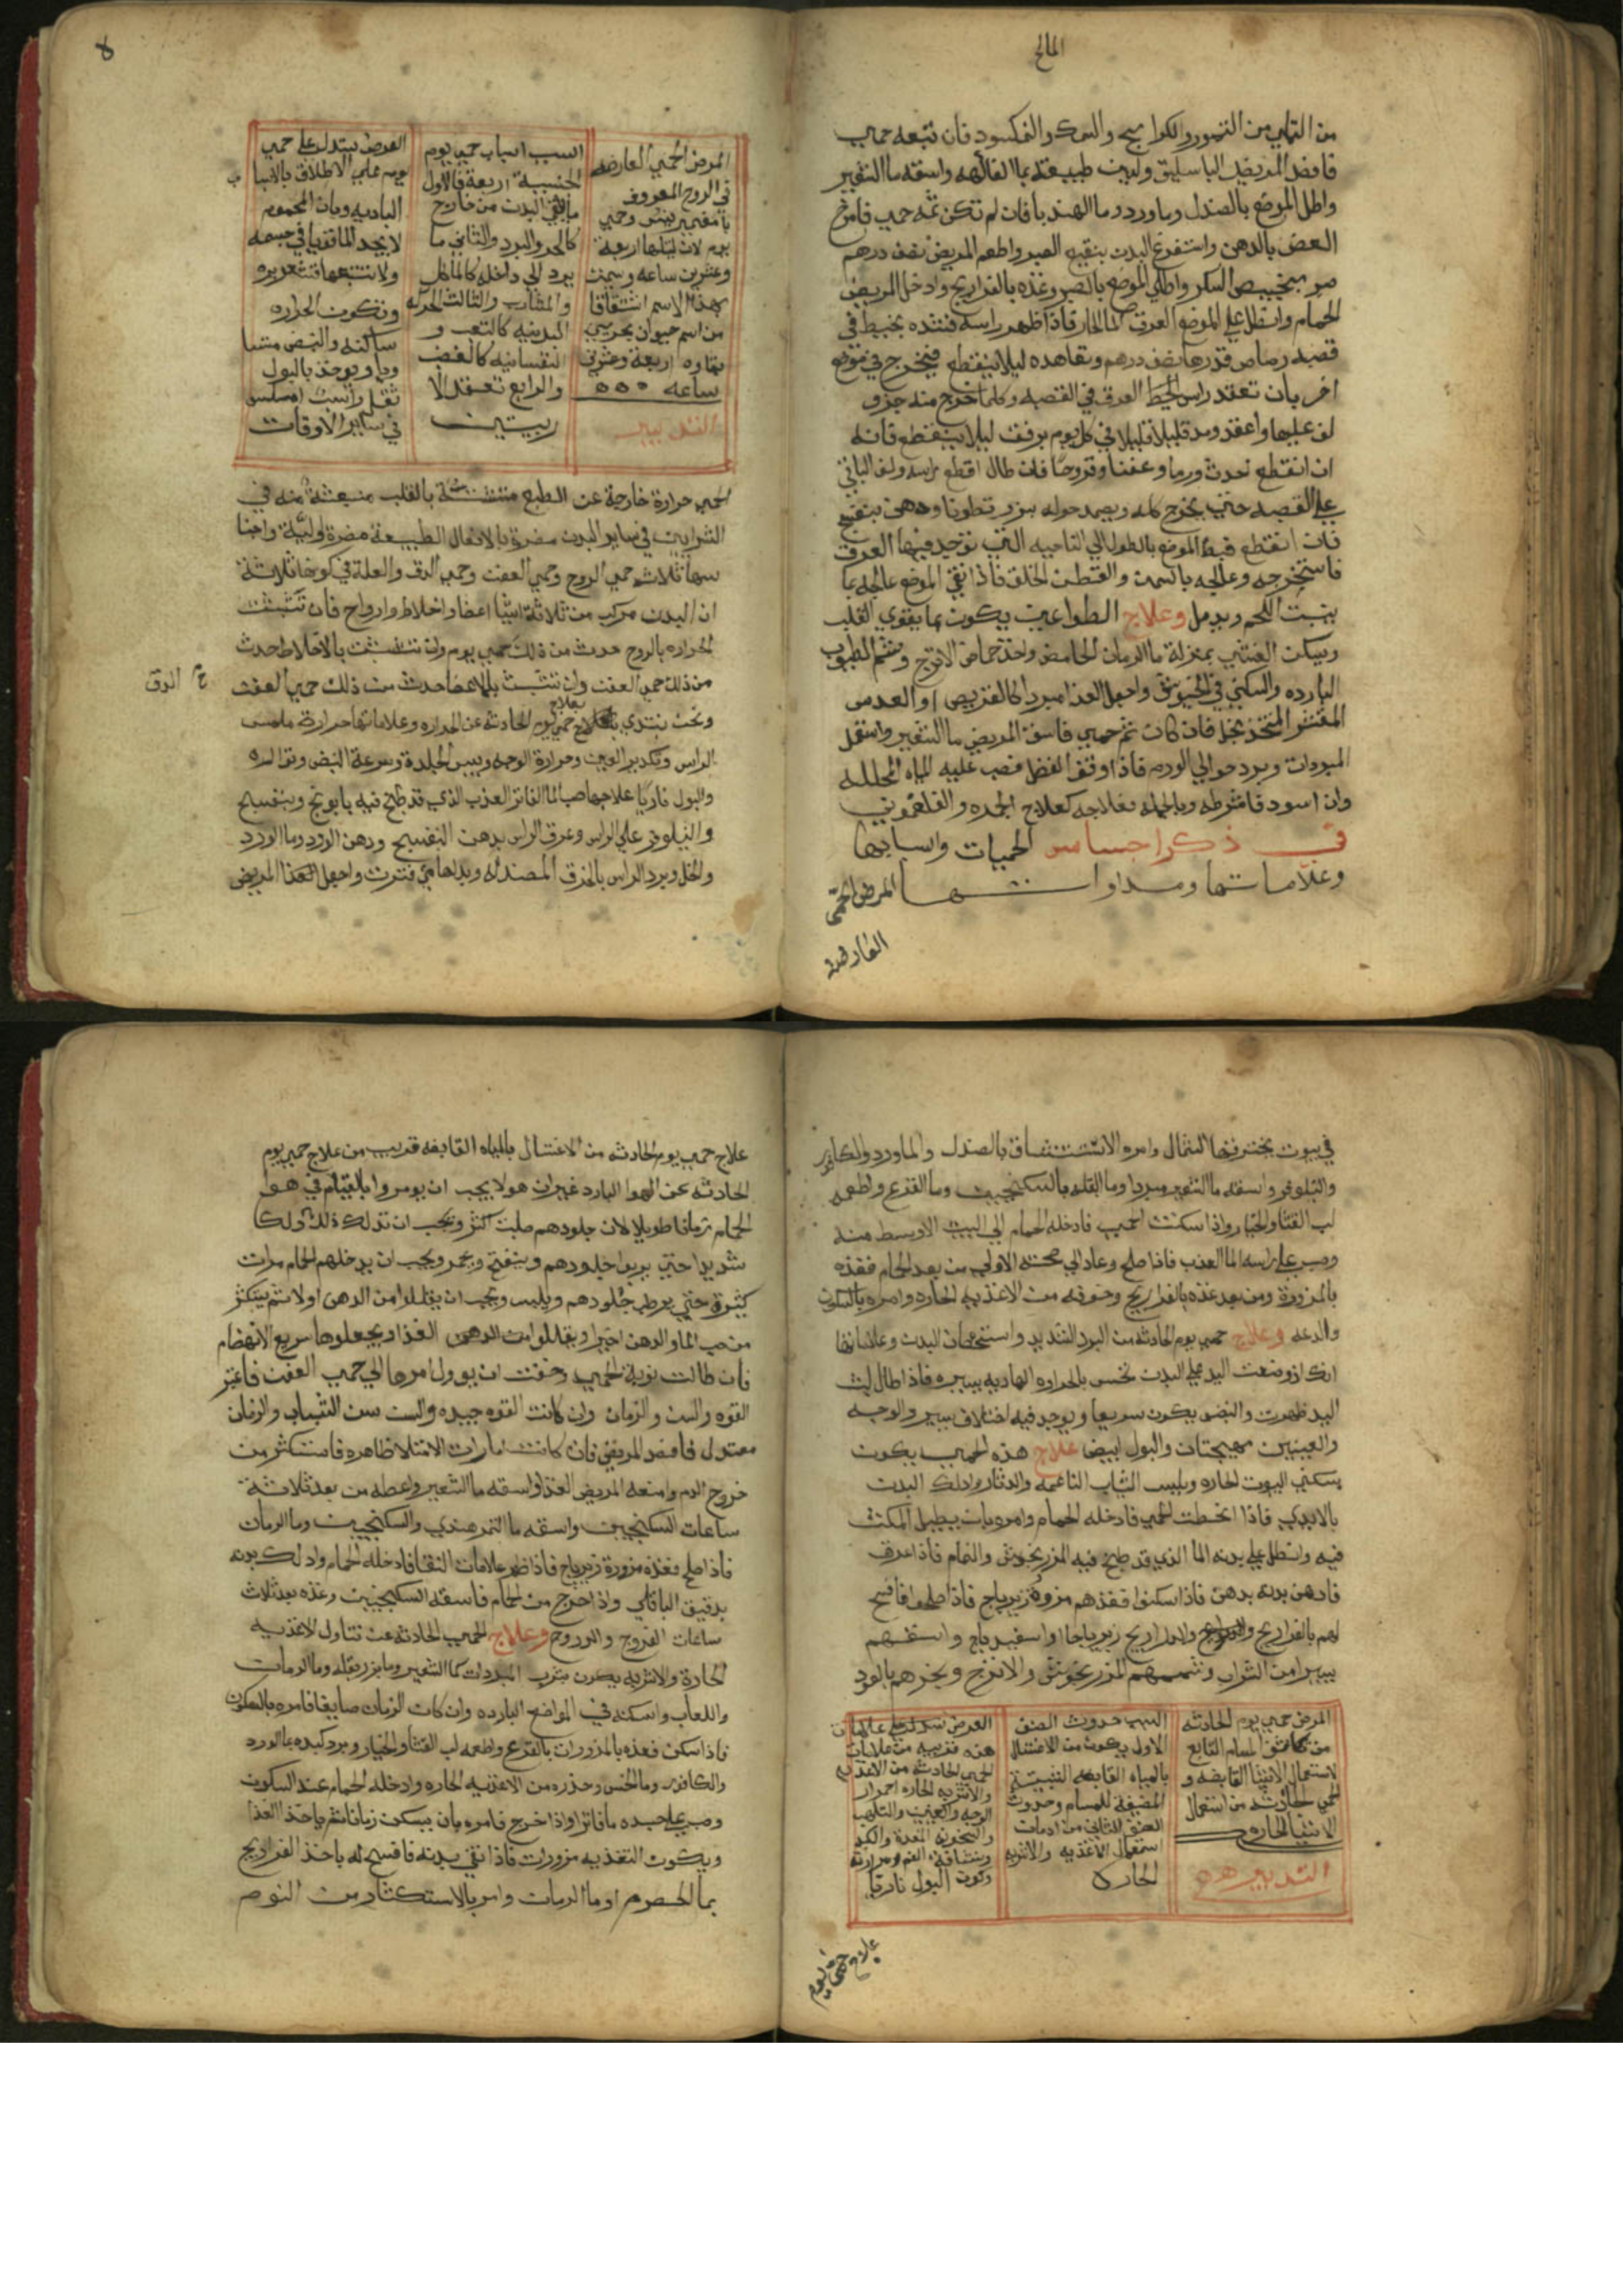 المالح
من التملي من التمور والكوامخ والسمك والنمكسود فان تبعه حمي
فافصد المريض الباسليق ولين طبيعته بما الفاكهه واسقه ما الشعير
واطل الموضع بالصندل وماورد وما الهندبا فان لم تكن ثمه حمي فامرخ
العضو بالدهن واستفرغ البدن بنقيع الصبر واطعم المريض نصف درهم
صبر بخبيص السكر واطلي الموضع بالصبر وغذه بالفراريج وادخل المريض
الحمام وانطل علي الموضع العرق الما الحار فاذا ظهر راسه فشده بخيط في
قصبه رصاص قدرها نصف درهم وتعاهده ليلا ينقطع فيخرج في موضع
اخر بان تعقد راس الخيط العرق في القصبه وكلما خرج منه جزو
لف عليها واعقد ومد قليلا قليلا في كل يوم برفق ليلا ينقطع فانه
ان انقطع احدث ورما وعفنا وقروحا فان طال اقطع راسه ولف الباقي
علي القصبه حتي يخرج كله ويضمد حوله ببزر قطونا ودهن بنفسج
فان انقطع فبط الموضع بالطول الي الناحيه التي توجد فيها العرق
فاستخرجه وعالجه بالسمن والقطن الخلق فاذا نقي الموضع عالجه بما
ينبت اللحم ويدمل وعلاج الطواعين يكون بما يقوي القلب
ويسكن الغشي بمنزلة ما الرمان الحامض واخذ حماض الاترج وشم الطيوب
البارده والسكني في الخيوش واجعل الغذا مبردا كالقريص او العدس
المقشر المتخذ بخل فان كان ثم حمي فاسق المريض ما الشعير واستعمل
المبردات وبرد حوالي الورم فاذا وقف الفضل فصب عليه المياه المحلله
وان اسود فاشرطه وبالجمله فعلاجه كعلاج الجمره والفلغموني
في ذكر اجناس الحميات واسبابها
وعلاماتها ومداواتها المرض الحمي
العارضه
المرض الحمي العارضه
في الروح المعروف
يوم لان لبثها اربعة
وعشرين ساعه وسميت
بهذا الاسم اشتقاقا
من اسم حيوان بحري
بقاوه اربعة وعشرين
ساعه
التدبير
السبب اسباب حمي يوم
الجنسيه اربعة فالاول
ما يلقي البدن من خارج
كالحر والبرد والثاني ما
يرد الي داخله كالماكل
والمشارب والثالث الحركه
البدنيه كالتعب و
النفسانيه كالغضب
والرابع تعقد الا
ربيتين
العرض يستدل علي حمي
يوم علي الاطلاق بالاسبا ب
الباديه وبان المحموم
لا يجد الما قويا في جسمه
ولا تتبعها قشعريره
وتكون الحراره
ساكنه والنبض مستبا
ويوجد بالبول
ثفل راسب املس
في ساير الاوقات
الحمي حرارة خارجة عن الطبع متشبثة بالقلب منبعثة منه في
الشرايين في ساير البدن مضرة بالافعال الطبيعة مضرة اولية واجنا
سها ثلاثه حمي الروح وحمي العفن وحمي الدق والعلة في كونها ثلاثة
ان البدن مركب من ثلاثة اشيا اعضا واخلاط وارواح فان تشبثت
الحراره بالروح حدث من ذلك حمي يوم وان تشبثت بالاخلاط حدث
من ذلك حمي العفن وان تشبثت بالاعضا حدث من ذلك حمي العفن
ح الدق
ونحن نبتدي بعلاج حمي يوم الحادثه عن الحراره وعلاماتها حرارة ملمس
الراس وتكدير العين وحرارة الوجه ويبس الجلدة وسرعة النبض وتواتره
والبول ناريا علاجها صب الما الفاتر العذب الذي قد طبخ فيه بابونج وبنفسج
والنيلوفر علي الراس وعرق الراس بدهن البنفسج ودهن الورد وما الورد
والخل وبرد الراس بالخرق المصندله وبدلها متي فترت واجعل غذا المريض
في بيوت يخترقها الشمال وامره الاستنشاق بالصندل والماورد والكافور
والنيلوفر واسقه ما الشعير مبردا وما البقله بالسكنجبين وما القرع واطعمه
لب القثا والخيار واذا سكنت الحمي فادخله الحمام الي البيت الاوسط منه
وصب علي راسه الما العذب فاذا صلح وعاد الي صحته الاولي من بعد الحمام فغذه
بالمزورة ومن بعد غذه بالفراريج وخوفه من الاغذيه الحاره وامره بالسكون
والدعه وعلاج حمي يوم الحادثه من البرد الشديد واستحصاف البدن وعلاماتها
انك اذا وضعت اليد علي البدن تحس بالحراره الهاديه يسيره فاذا طال لبث
اليد ظهرت والنبض يكون سريعا ويوجد فيه اختلاف يسير والوجه
والعينين مهيجتان والبول ابيض علاج هذه الحمي يكون
بسكني البيوت الحاره ويلبس الثياب الناعمه والدثار وادلك البدن
بالايدي فاذا انحطت الحمي فادخله الحمام وامره بان يطيل المكث
فيه وانطل علي بدنه الما الذي قد طبخ فيه المرزنجوش والنمام فاذا عرق
فادهن بدنه بدهن فاذا سكنوا فغذهم مزورة زيرباج فاذا صلحوا فافسح
لهم بالفراريج والدراريج زيرباجا او اسفيدباج واسقهم
يسيرا من الشراب وشممهم المرزنجوش والاترج وبخرهم بالعود
المرض حمي يوم الحادثه
من تكاثف المسام التابع
لاستعمال الاشيا القابضه و
الحمي الحادثه من استعمال
الاشيا الحاره
التدبير
السبب حدوث الصنف
الاول يكون من الاغتسال
بالمياه القابضه الشبيه
المضيقه للمسام وحدوث
الصنف الثاني من ادمان
استعمال الاغذيه والاشربه
الحاره
العرض يستدل علي علامات
هذه قريبه من علامات
الحمي الحادثه من الاغذيه
والاشربه الحاره احمرار
الوجه والعينين والتلهب
والسخونه المعدة والكبد
ونشافة الفم ومرارته
وكون البول ناريا
علاج حمي يوم
علاج حمي يوم الحادثه من الاغتسال بالمياه القابضه قريب من علاج حمي يوم
الحادثه عن الهوا البارد غير ان هولا يجب ان يومروا بالقيام في هوا
الحمام زمانا طويلا لان جلودهم صلبت اكثر ويجب ان تدلك ذلك دلكا
شديدا حتي يربوا جلودهم وينفتح ويحمر ويجب ان يدخلهم الحمام مرات
كثيرة حتي يرطب جلودهم ويلين ويجب ان يقللوا من الدهن اولا ثم يستكثر
من صب الما والدهن اخيرا ويقللوا من الدهن الغذا ويجعلوها سريع الانهضام
فان طالت نوبة الحمي وخفت ان يوول امرها الي حمي العفن فاعتبر
القوه والسن والزمان وان كانت القوه جيده والسن سن الشباب والزمان
معتدل فافصد المريض فان كانت امارات الامتلا ظاهره فاستكثر من
خروج الدم وامنعه المريض الغذا واسقه ما الشعير واعطه من بعد ثلاثة
ساعات السكنجبين واسقه ما التمر هندي والسكنجبين وما الرمان
فاذا صلح فغذه مزورة زيرباج فاذا ظهر علامات النقا فادخله الحمام وادلك بدنه
بدقيق الباقلي واذا خرج من الحمام فاسقه السكنجبين وغذه بعد ثلاث
ساعات الفروج والدروج وعلاج الحمي الحادثه عن تناول الاغذيه
الحارة والاشربه يكون بشرب المبردات كما الشعير وما بزر بقله وما الرمان
واللعاب واسكنه في المواضع البارده وان كان الزمان صايفا فامره بالسكون
فاذا سكن فغذه بالمزورات بالقرع واطعمه لب القثا والخيار وبرد كبده بما الورد
والكافور وما الخس وحذره من الاغذيه الحاره وادخله الحمام عند السكون
وصب علي جسده ما فاترا واذا خرج فامره بان يسكن زمانا ثم ياخذ الغذا
ويكون التغذيه مزورات فاذا نقي بدنه فافسح له باخذ الفراريج
بما الحصرم او ما الرمان وامر بالاستكثار من النوم